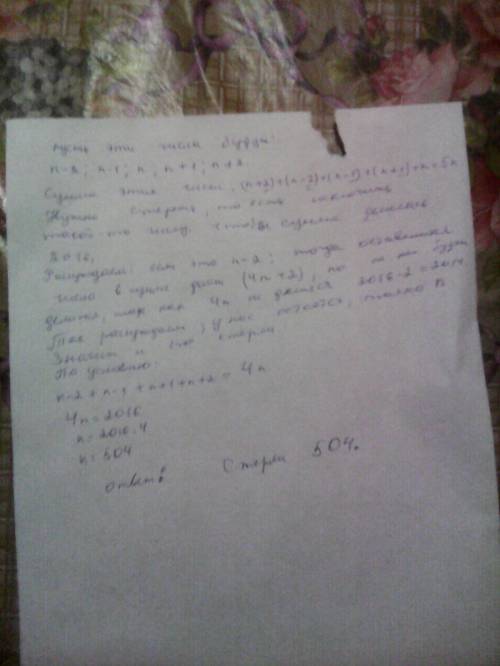 Пусть эти числа будут:
n-2; n-1; n; n+1; n+2.
Сумма этих чисел, (n+2)+(n-2)+(n-1)+(n+1)+n=5n
Нужно стереть, то есть
чтобы сумма
2016,
Рассуждаем: сам это n-2; тогда оставшиеся
число в сумме дают (4n+2), но
делится, так как 4n не 2016-2=2014
Так рассуждаем, У нас остаётся, только n
Значит и его стёрли.
По условию:
n-2+n-1+n+1+n+2=4n
4n=2016
n=2016:4
n=504
ответ: Стёрли 504.